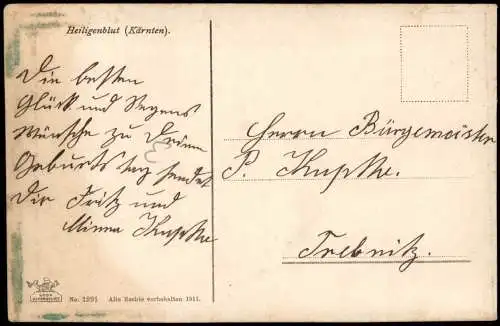 Heiligenblut (Kärnten).
Die besten
Glück und Segens
Wünsche zu Deinem
Geburtstag sendet
Dir Fritz und
Minna Kupke
Herrn Bürgemeister
P. Kupke.
Trebnitz.
No. 1291 Alle Rechte vorbehalten 1911.